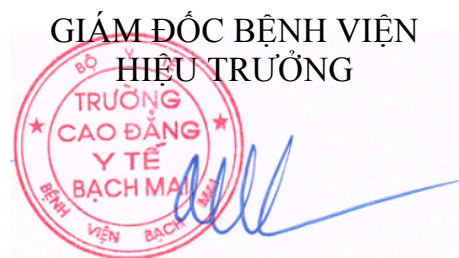 GIÁM ĐỐC BỆNH VIỆN
HIỆU TRƯỞNG
BỘ Y TẾ
TRƯỜNG
CAO ĐẲNG
Y TẾ
BẠCH MAI
BỆNH VIỆN BẠCH